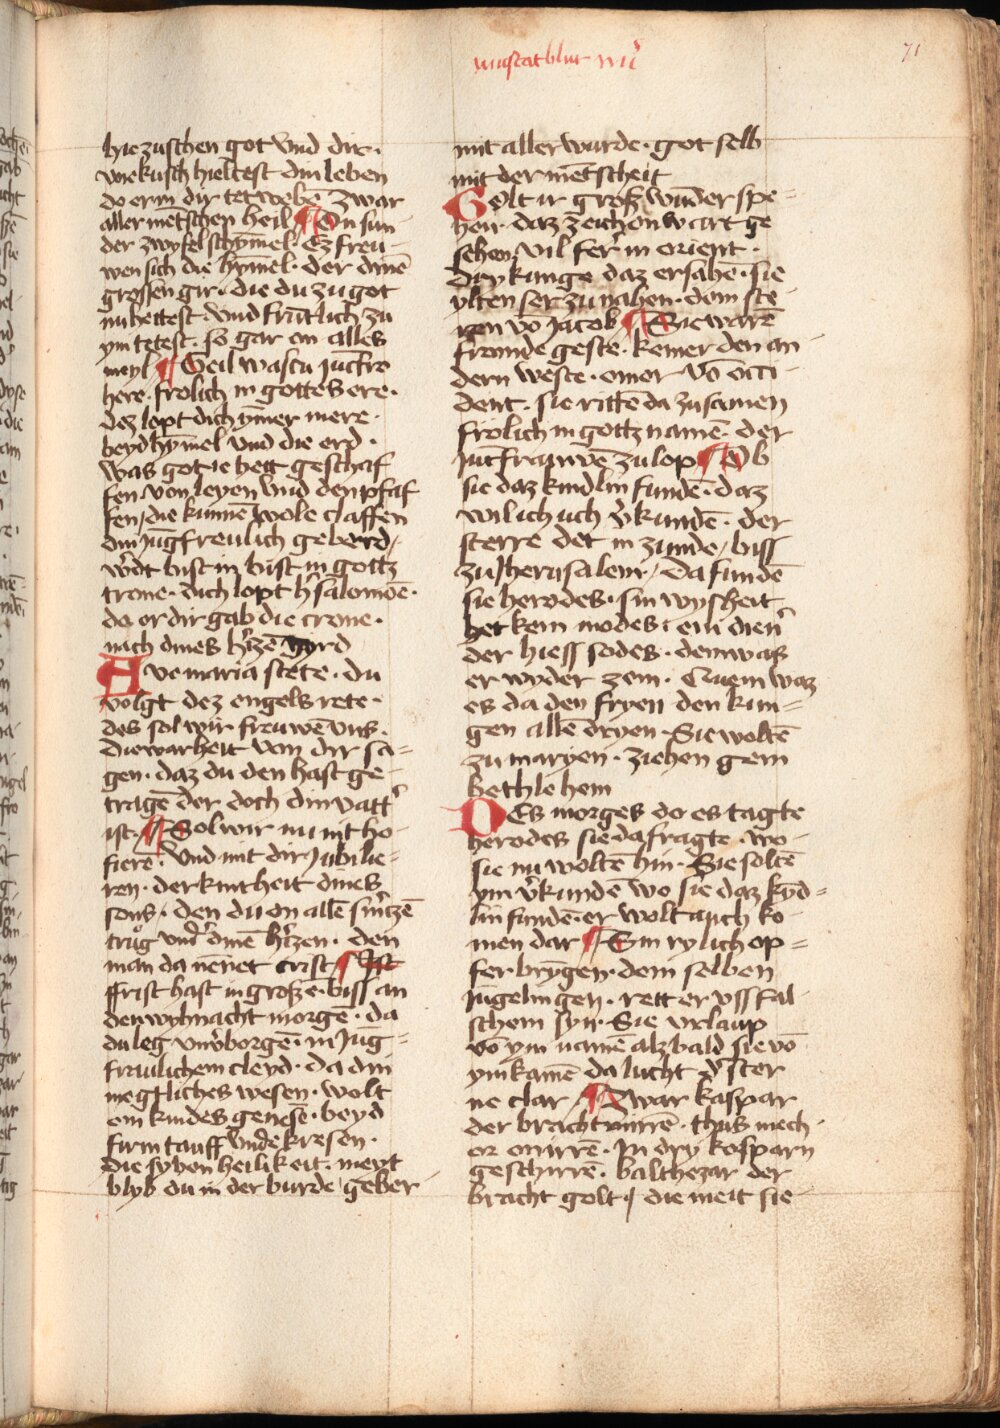 muscatblut
71
hie zuschen got vnd dir·
wie kusch hieltest din leben
do er in dir tet webē zwar
aller mētschen heil ¶ On sun
der zwyfels schymel· Ez freu-
wen sich die hymel· der dinē
grossen gir· die du zu got
nu hettest· vnd frūtlich zu
ym tetest· so gar on alles
meyl ¶ Seil wastu juncfro
here· frolich in gottes ere·
dez lopt dich ymer mere·
beyd hymel vnd die erd·
was got ie hett geschaf
fen von leyen vnd den pfaf
fen / die kunnē wole claffen
din jūgfreulich geberd /
wirdt bist in gottz
trone· dich lopt her salomōe·
do er dir gab die crone·
nach dines hertzē gyrd
Ave maria stete· du
volgt dez engels rete·
des sol wir freuwē vns·
die warheit von dir sa=
gen· daz du den hast ge-
tragē der doch din vatter
ist· ¶ Sol wir nu nit ho-
fierē· vnd mit dir jubilie=
ren· der kintheit dines
sons· den du on allē smerzē
trůg vnder dinē hertzen· den
man da nēnet crist ¶
ffrist hast in grosz ē biss an
den wyhnacht morgē· da
du leg vnverborgē in jūg=
freulichem cleyd· da din
megtliches wesen· wolt
ein kindes genesē· beyd
firm tauff vnde kresen·
die syben heilikeit· meyt
blyb du in der burde / geber
mit aller wurde· got selb
mit der mētscheit
Solt ir grosz wunder spe=
hen· daz zeichen wart ge
sehen vil fer in orient·
dry kunge daz ersahē· sie
ylten ser zu nahen· dem ste
rnen vō Jacob ¶ Sie warē
fremde geste· keiner den an-
dern weste· einer vō occi-
dent· sie rittē da zusamen
frolich in gottz namē· der
juncfrauwē zu lop ¶ Ob
sie daz kindlin fundē· daz
wil ich uch verkundē· der
sterre det in zunde / biss
zu Jherusalem / da fundē
sie herodes· sin wysheit
het kein modes· ein diener
der hiess sodes· dem was
er wyder zem· Quem waz
es da den fryen den kun=
gen allē dryen· Sie woltē
zu maryen· ziehen gein
bethlehem
Des morges do es tagte
herodes sie da fragte· wo-
sie nu woltē hin· Sie soltē
ym verkundē wo sie daz kyd=
lin fundē· er wolt auch ko-
men dar ¶ Sin rylich op=
fer brygen· dem selben
jūgelingen· rett er vss fal-
schem syn· Sie vrlaup
vō ym namē alz bald sie vō
ym kamē da lucht der ster
ne clar ¶ Zwar kaspar
der bracht mirrē· thus mech-
or on irrē· In dry kosparn
geschirrē· balthezar der
bracht golt / die meit sie-